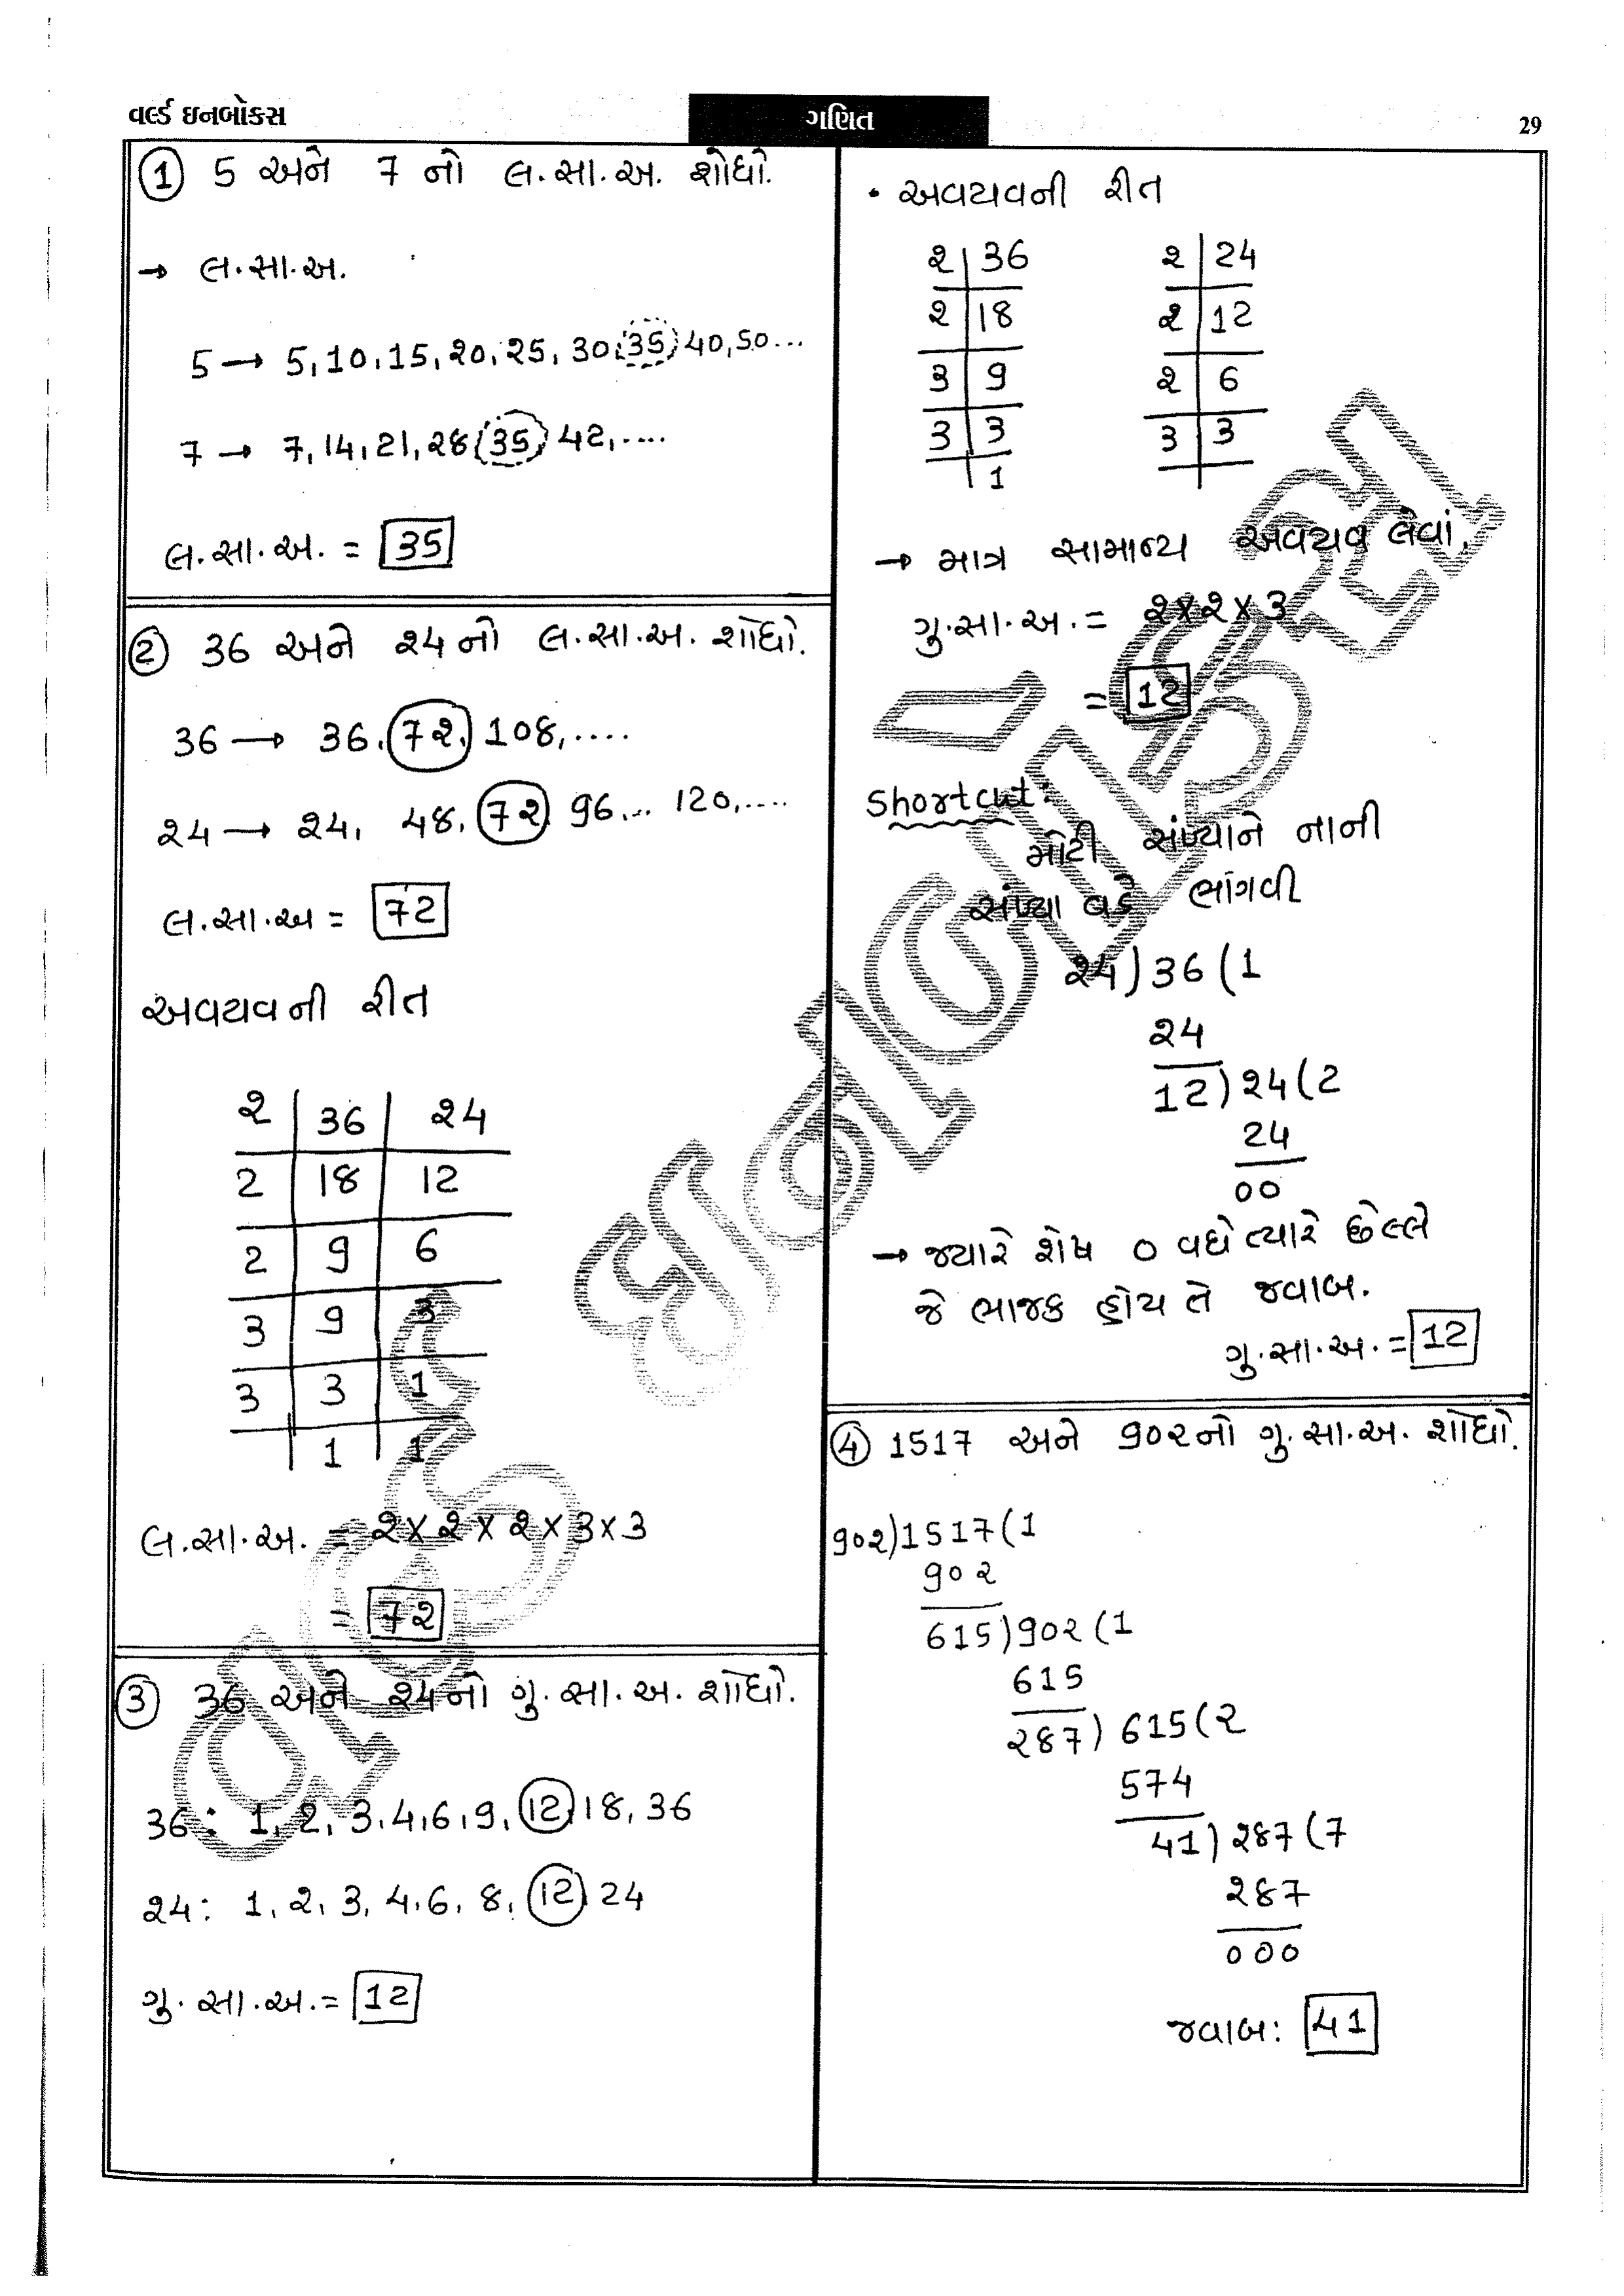 વર્લ્ડ ઇનબોક્સ
ગણિત
29
① 5 અને 7 નો લ.સા.અ. શોધો.
→ લ.સા.અ.
5 → 5, 10, 15, 20, 25, 30, 35, 40, 50...
7 → 7, 14, 21, 28, 35, 42, ....
લ.સા.અ. = 35
② 36 અને 24 નો લ.સા.અ. શોધો.
36 → 36, 72, 108, ....
24 → 24, 48, 72, 96, ... 120, ....
લ.સા.અ = 72
અવયવની રીત
2 | 36 | 24
2 | 18 | 12
2 | 9 | 6
3 | 9 | 3
3 | 3 | 1
| 1 | 1
લ.સા.અ. = 2×2×2×3×3
= 72
③ 36 અને 24નો ગુ.સા.અ. શોધો.
36: 1, 2, 3, 4, 6, 9, 12, 18, 36
24: 1, 2, 3, 4, 6, 8, 12, 24
ગુ.સા.અ. = 12
• અવયવની રીત
2 | 36 2 | 24
2 | 18 2 | 12
3 | 9 2 | 6
3 | 3 3 | 3
| 1
→ માત્ર સામાન્ય અવયવ લેવાં.
ગુ.સા.અ. = 2×2×3
= 12
Shortcut:
મોટી સંખ્યાને નાની
સંખ્યા વડે ભાંગવી
24)36(1
24
12)24(2
24
00
→ જ્યારે શેષ 0 વધે ત્યારે છેલ્લે
જે ભાજક હોય તે જવાબ.
ગુ.સા.અ. = 12
④ 1517 અને 902નો ગુ.સા.અ. શોધો.
902)1517(1
902
615)902(1
615
287)615(2
574
41)287(7
287
000
જવાબ: 41